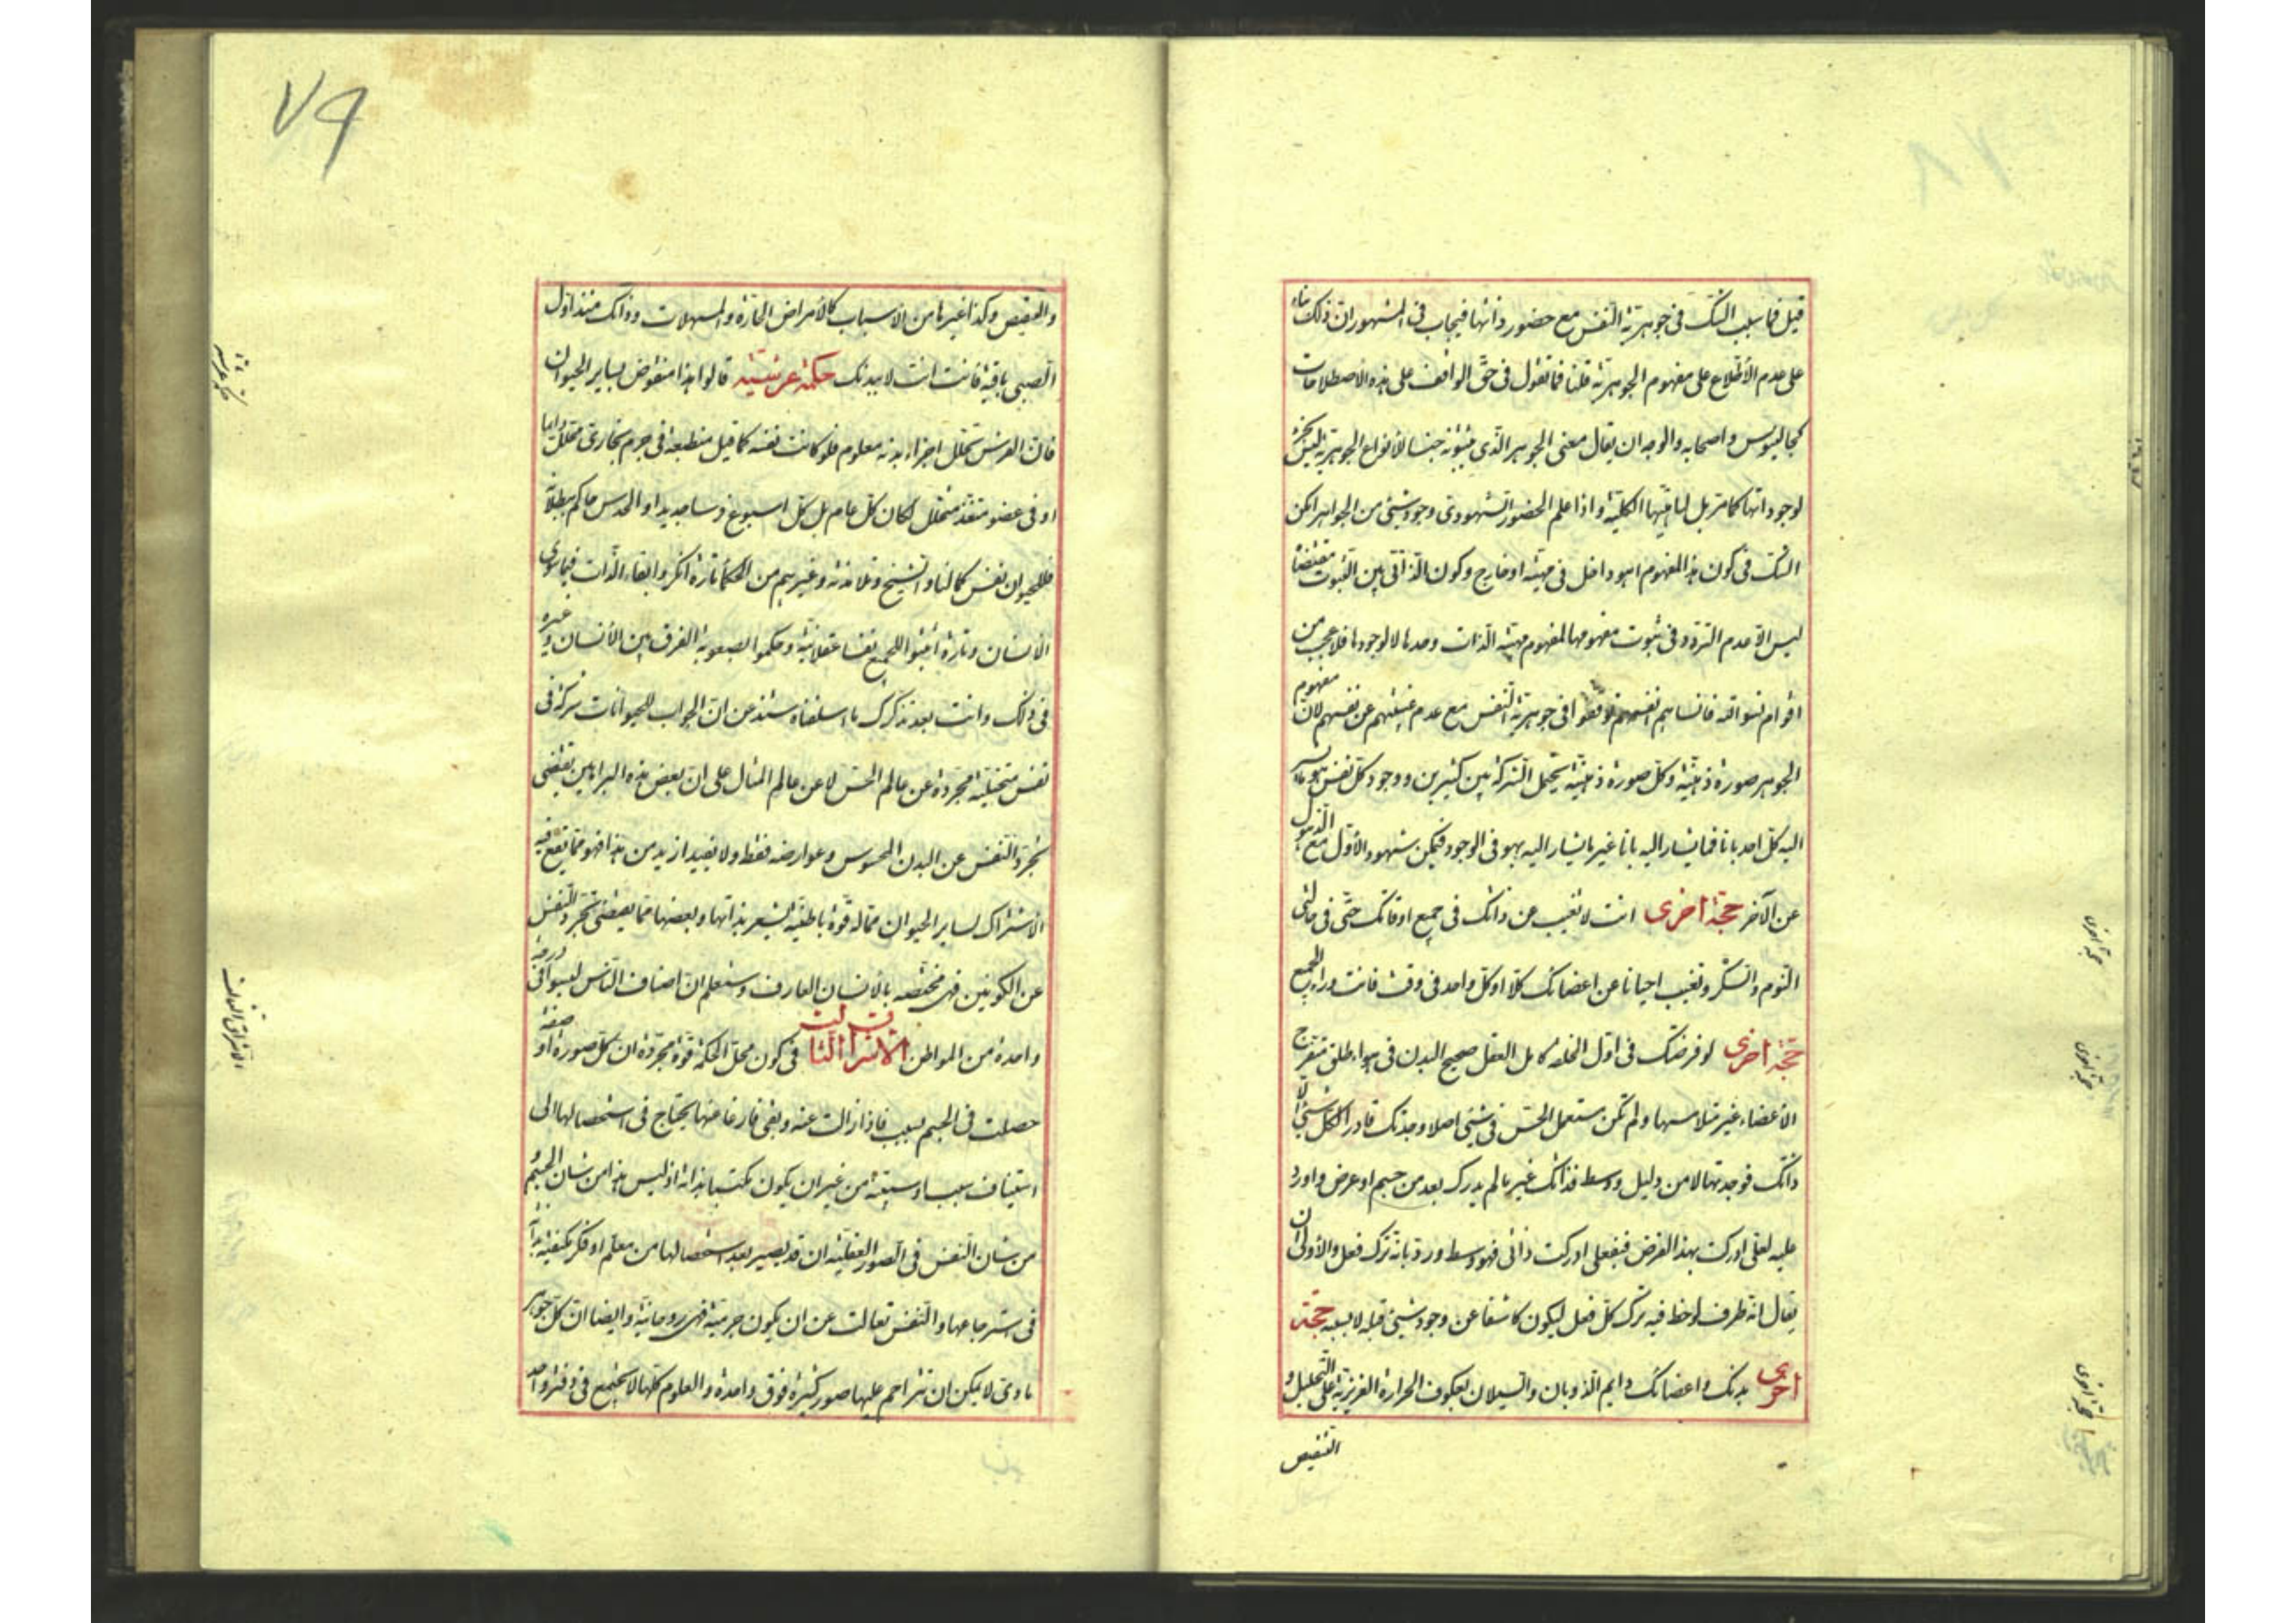 قيل فما سبب الشك فى جوهرية النفس مع حضور ذاتها فيجاب فى المشهور ان ذلك بناء
على عدم الأطلاع على مفهوم الجوهرية قلنا فما تقول فى حق الواقف على هذه الاصطلاحات
كجالينوس واصحابه والوجه ان يقال معنى الجوهر الذى يثبتونه جنسا لأنواع الجوهرية ليس بجزء
لوجوداتها كما مر بل لماهيتها الكلية واذا علم الحضور الشهودى وجود شيئ من الجواهر امكن
الشك فى كون هذا المفهوم اهو داخل فى مهيته او خارج وكون الذاتى بين الثبوت مقتضاه
ليس الا عدم التردد فى ثبوت مفهومها لمفهوم مهية الذات وحدها لا لوجودها فلا عجب من
اقوام نسوا الله فانساهم انفسهم توقفوا فى جوهرية النفس مع عدم غيبتهم عن نفسهم لان مفهوم
الجوهر صورة ذهنية وكل صورة ذهنية يحتمل الشركة بين كثيرين ووجود كل نفس هو ما يشير
اليه كل احد بانا فما يشار اليه بانا غير ما يشار اليه بهو فى الوجود فيمكن شهود الأول مع الذهول
عن الآخر حجة اخرى انت لا تغيب عن ذاتك فى جميع اوقاتك حتى فى حالتى
النوم والسكر وتغيب احيانا عن اعضائك كلا او كل واحد فى وقت فانت وراء الجميع
حجة اخرى لو فرضتك فى اول الخلقة كامل العقل صحيح البدن فى هواء طلق منفرج
الأعضاء غير متلامسها ولم تكن مستعمل الحس فى شيئ اصلا وجدتك تاركا لكل شيئ الا
ذاتك فوجدتها لا من دليل ووسط فذاتك غير ما لم يدرك بعد من جسم او عرض واورد
عليه لعلى ادركت بهذا الفرض فبفعلى ادركت ذاتى فهو وسط ورد بانه ترك فعل والأولى ان
يقال انه ظرف لوحظ فيه ترك كل فعل ليكون كاشفا عن وجود شيئ قبله لا بسببه حجة
اخرى بدنك واعضائك دايم الذوبان والسيلان لعكوف الحرارة الغريزية على التحليل و
التنقيص
٧٩
والتنقيص وكذا غيرها من الاسباب كالأمراض الحارة والمسهلات وذاتك منذ اول
الصبى باقية فانت انت لا ببدنك حكمة عرشية قالوا هذا منقوض بساير الحيوان
فان الفرس تحلل اجزاء بدنه معلوم فلو كانت نفسه كما قيل منطبعة فى جرم بخارى متحلل دايما
او فى عضو متغذ متحلل لكان كل عام بل كل اسبوع فرسا جديدا والحدس حاكم ببطلانه
فللحيوان نفس كما لنا والشيخ وتلامذته وغيرهم من الحكماء تارة انكروا بقاء الذات فيما سوى
الانسان وتارة اثبتوا للجميع نفسا عقلانية وحكموا لصعوبة الفرق بين الانسان وغيره
فى ذلك وانت بعد تذكرك ما اسلفناه ستذعن ان الجواب للحيوانات شركة فى
نفس متخيلة مجردة عن عالم الحس لا عن عالم المثال على ان بعض هذه البراهين يقتضى
تجرد النفس عن البدن المحسوس وعوارضه فقط ولا يفيد ازيد من هذا فهو مما يقع فيه
الاشتراك لساير الحيوان مما له قوة باطنية يشعر بذاتها وبعضها مما يقتضى تجرد النفس
عن الكونين فهى مختصة بالانسان العارف وستعلم ان اصناف الناس ليسوا فى درجة
واحدة من المواطن الاشراق الثالث فى كون محل الحكمة قوة مجردة ان كل صورة او صفة
حصلت فى الجسم بسبب فاذا زالت عنه وبقى فارغا عنها يحتاج فى استحصالها الى
استيناف سبب او سببية من غير ان يكون مكتسبا بذاته اذ ليس هذا من شان الجسم و
من شان النفس فى الصور العقلية ان قد يصير بعد استحصالها من معلم او فكر مكتفية بذاتها
فى استرجاعها والنفس تعالت عن ان يكون جرمية فهى روحانية وايضا ان كل جوهر
مادى لا يمكن ان تتزاحم عليها صور كثيرة فوق واحدة والعلوم كلها لا تجتمع فى دفتر واحد
الاشراق الثالث